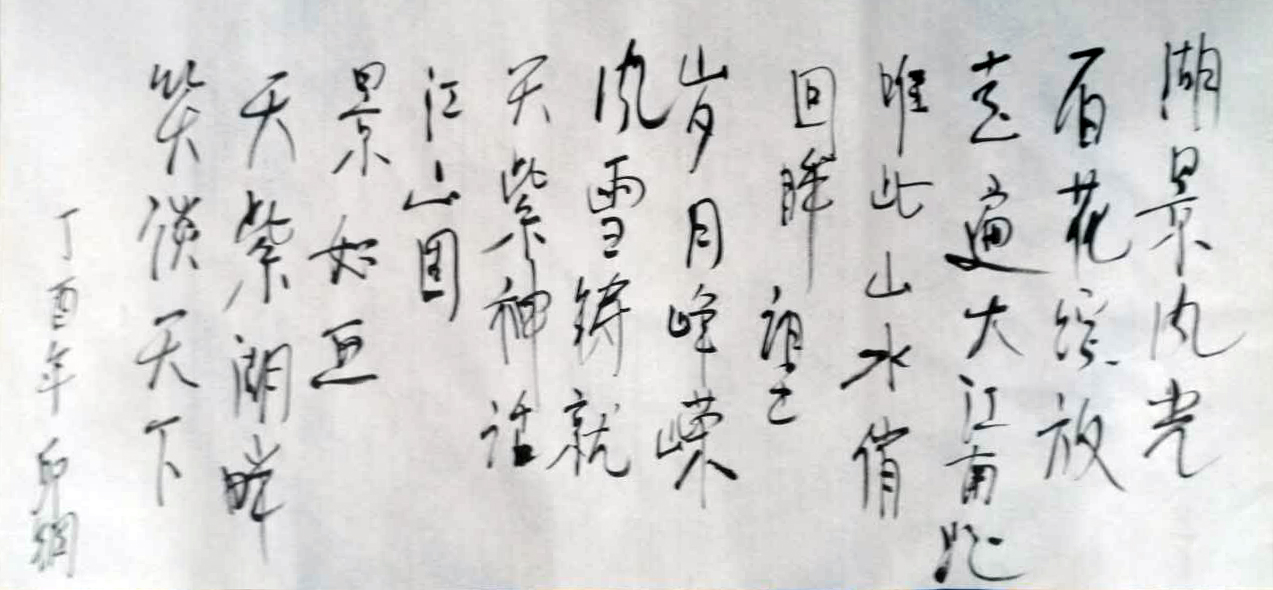 湖景风光
百花缤放
走遍大江南北
唯此山水俏
回眸望
岁月峥嵘
风雪铸就
天紫神话
江山图
景如画
天紫湖畔
笑谈天下
丁酉年